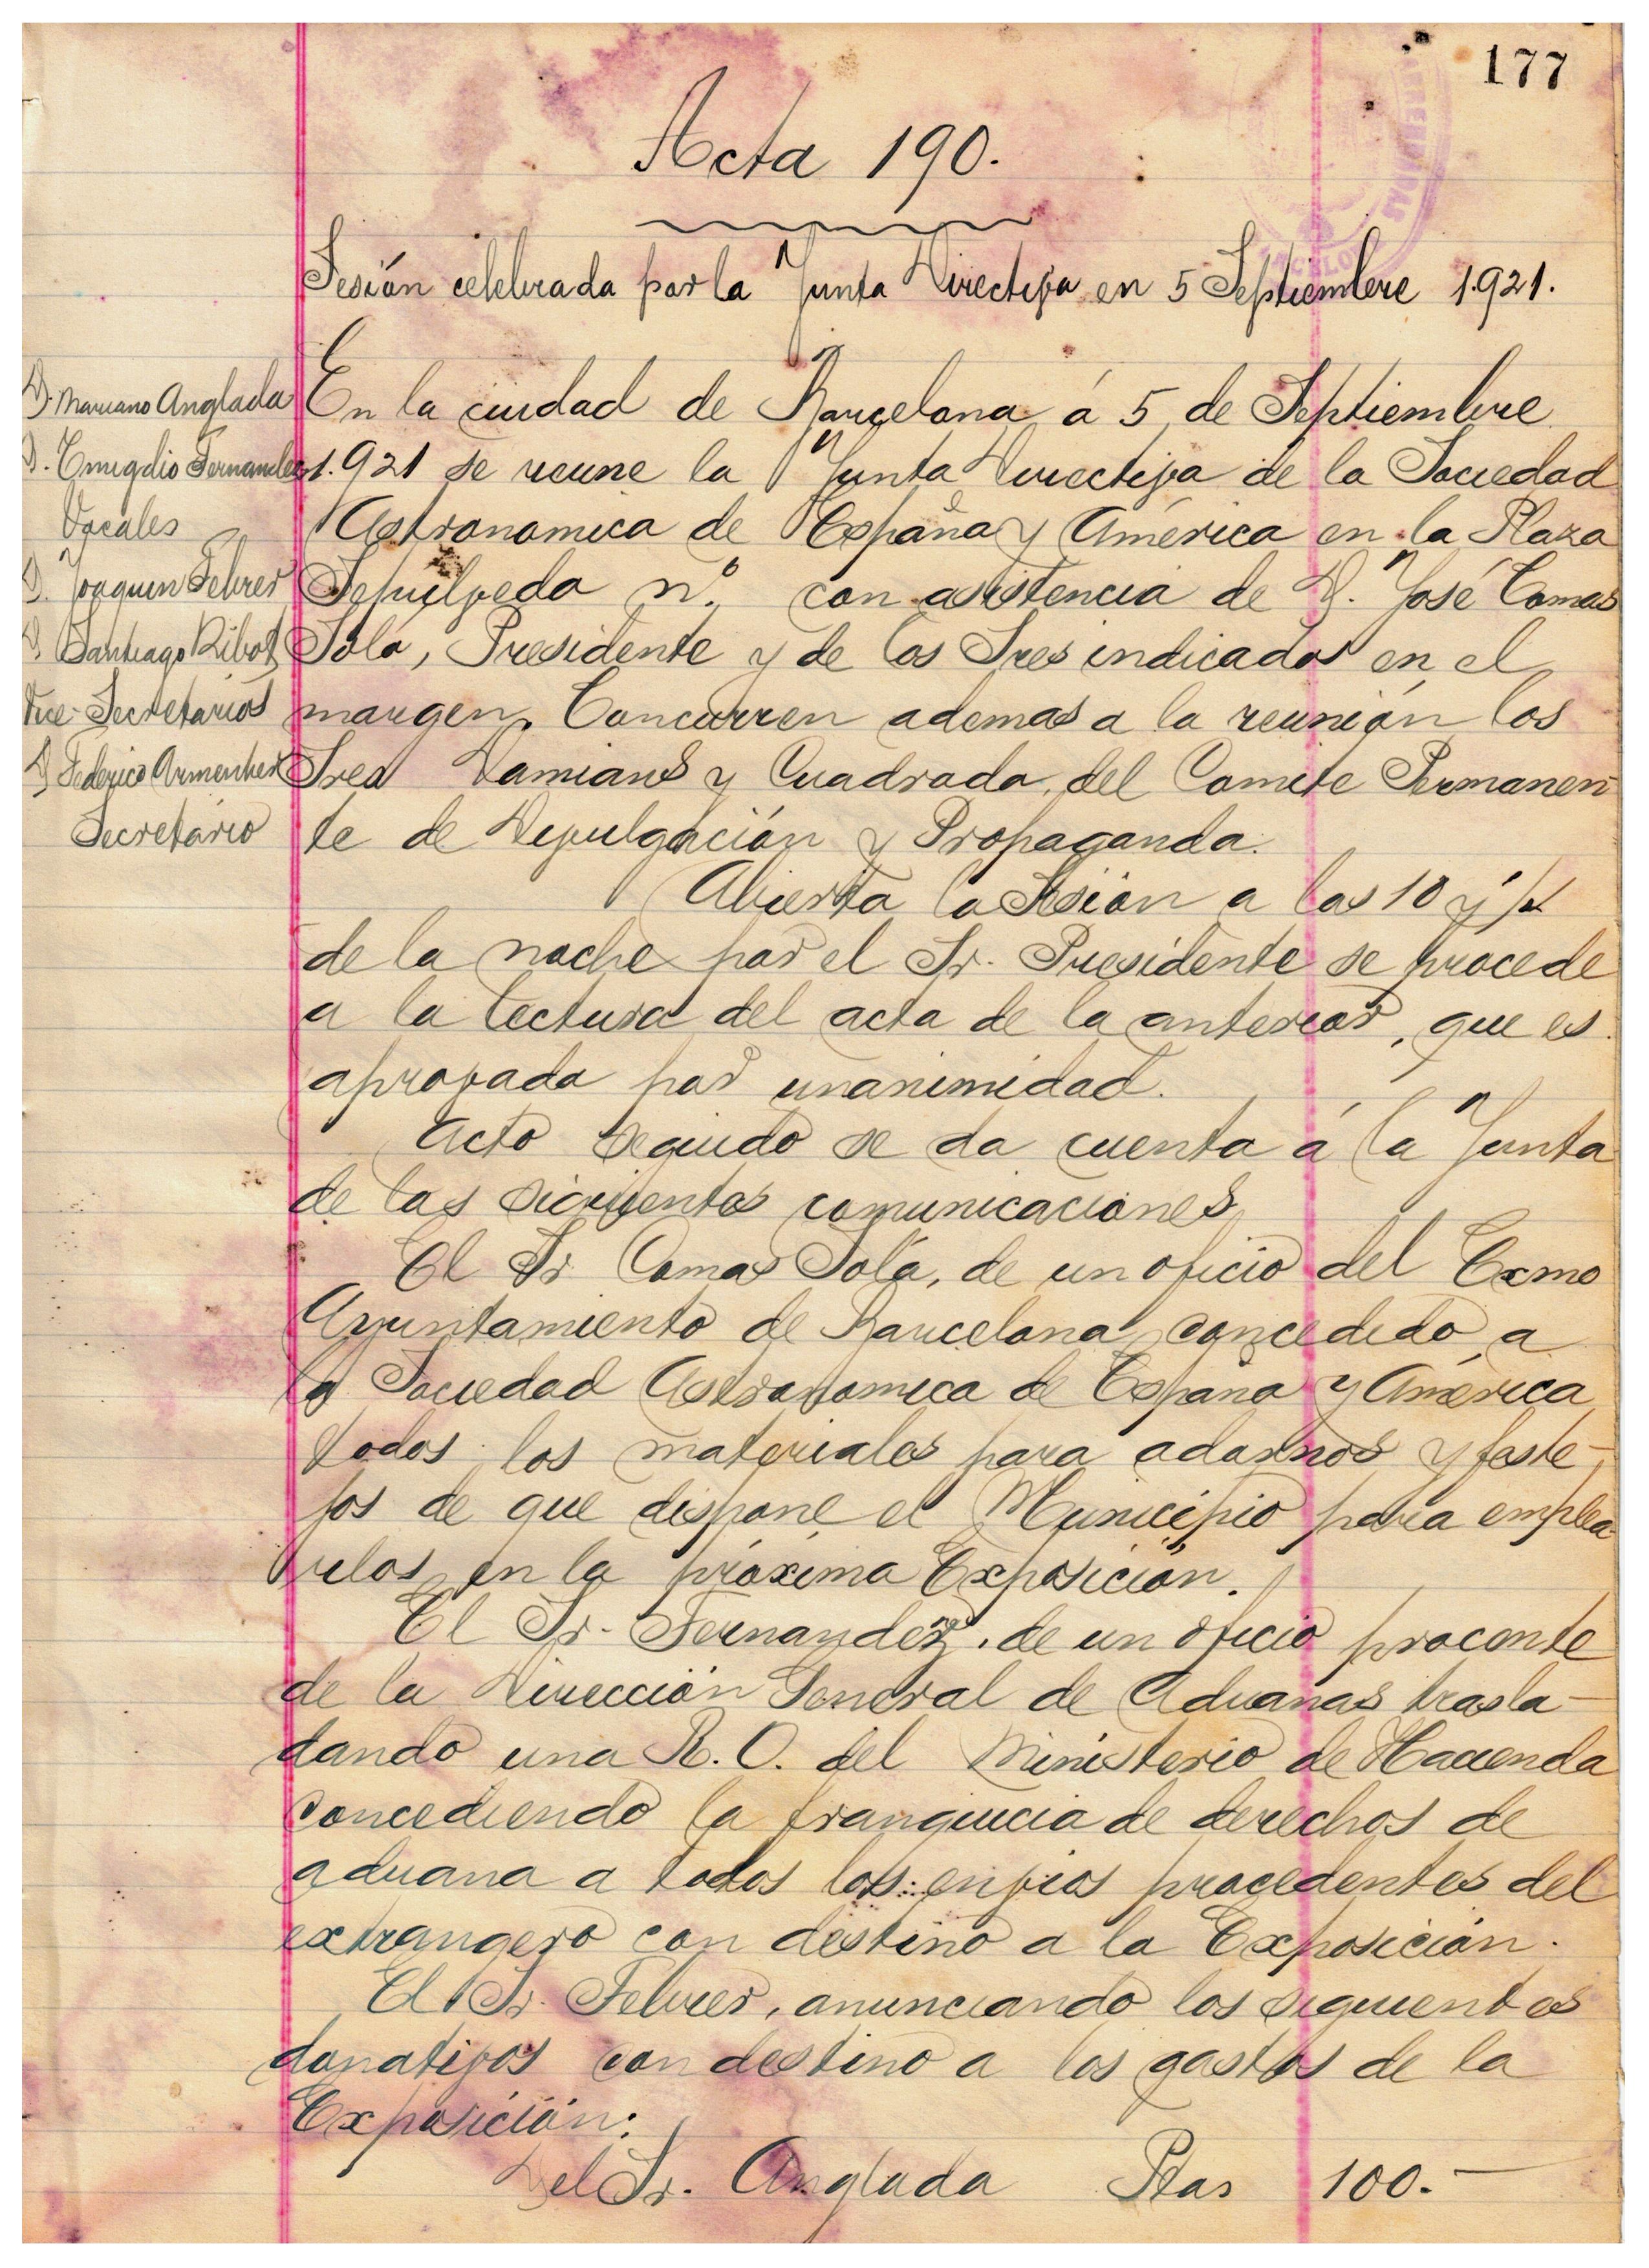 177
Acta 190.
Sesión celebrada por la Junta Directiva en 5 Septiembre 1.921.
D. Mariano Anglada
D. Emigdio Fernandez
Vocales
D. Joaquin Febrer
D. Santiago Ribot
Vice-Secretarios
D. Federico Armenter
Secretario
En la ciudad de Barcelona á 5 de Septiembre
1.921 se reune la Junta Directiva de la Sociedad
Astronomica de España y América en la Plaza
Sepúlveda n.º con asistencia de D. José Comas
Solá, Presidente y de los Sres indicados en el
margen. Concurren ademas a la reunión los
Sres Damians y Cuadrada, del Comite Permanen-
te de Divulgación y Propaganda.
Abierta la Sesión a las 10 y
de la noche por el Sr. Presidente se procede
a la lectura del acta de la anterior, que es
aprovada por unanimidad.
Acto seguido se da cuenta á la Junta
de las siguientes comunicaciones
El Sr Comas Solá, de un oficio del Exmo
Ayuntamiento de Barcelona, concedido a
la Sociedad Astronomica de España y América
todos los materiales para adornos y feste-
jos de que dispone el Municipio para emplea-
rlos en la próxima Exposición.
El Sr. Fernandez, de un oficio procente
de la Dirección General de Aduanas trasla-
dando una R. O. del Ministerio de Hacienda
concediendo la franquicia de derechos de
aduana a todos los envios procedentes del
extrangero con destino a la Exposición.
El Sr. Febrer, anunciando los siguientes
donativos con destino a los gastos de la
Exposición:
Del Sr. Anglada Ptas 100.-